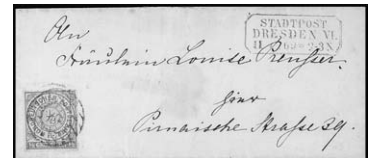 An
STADTPOST
DRESDEN VI.
Fräulein Louise Preusser.
hier
Pirnaische Strasse 29.